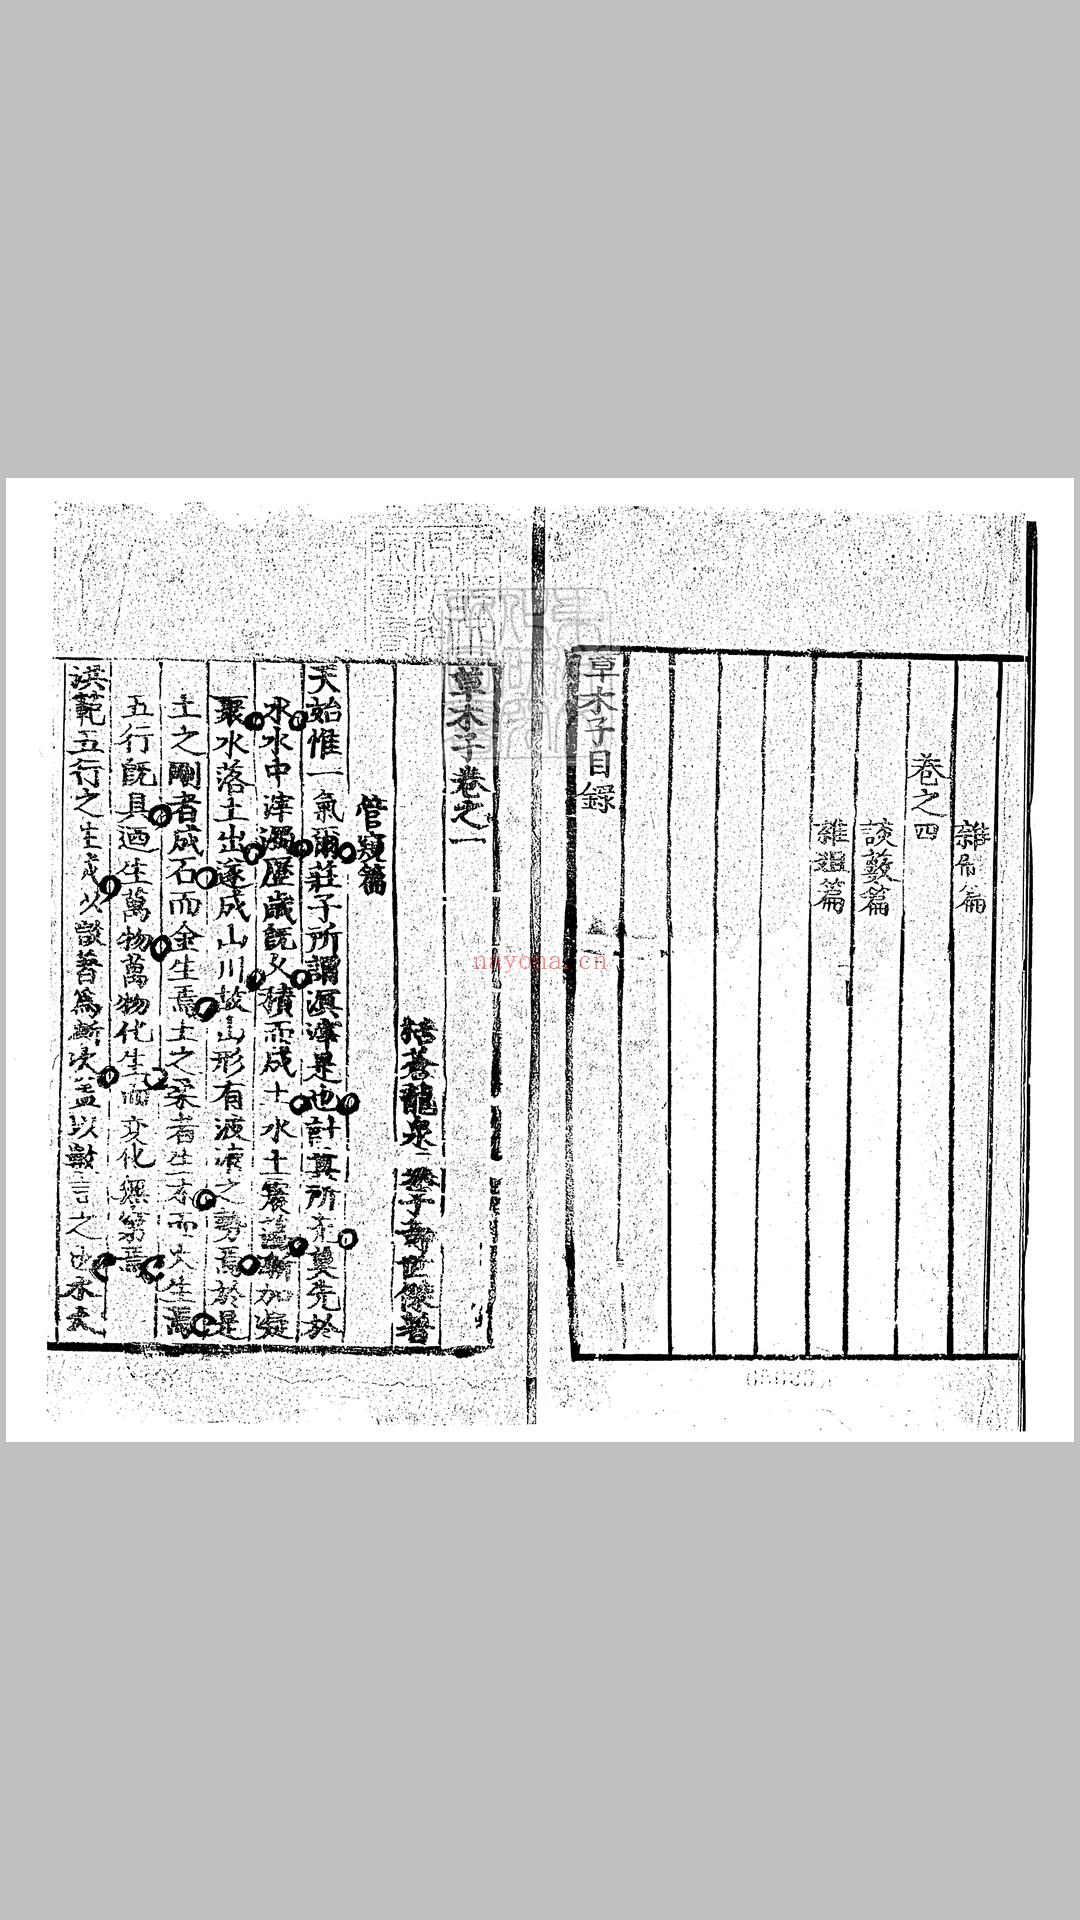 雜俎篇
卷之四
談藪篇
雜俎篇
草木子目錄
草木子卷之一
括蒼龍泉 子奇世傑著
管窺篇
天始惟一氣爾莊子所謂溟涬是也計其所先莫先於
水水中滓濁歷歲旣久積而成土水土震蕩漸加凝
聚水落土出遂成山川故山形有波浪之勢焉於是
土之剛者成石而金生焉土之柔者生木而火生焉
五行旣具迺生萬物萬物化生而变化無窮焉
洪範五行之生成以微著為漸次盖以數言之也水火
nayona.cn